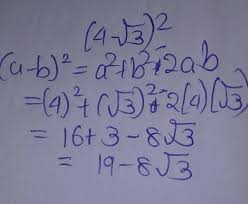 (4-√3)²
(a-b)² = a²+b²-2ab
=(4)²+(√3)²-2(4)(√3)
= 16+3-8√3
= 19-8√3